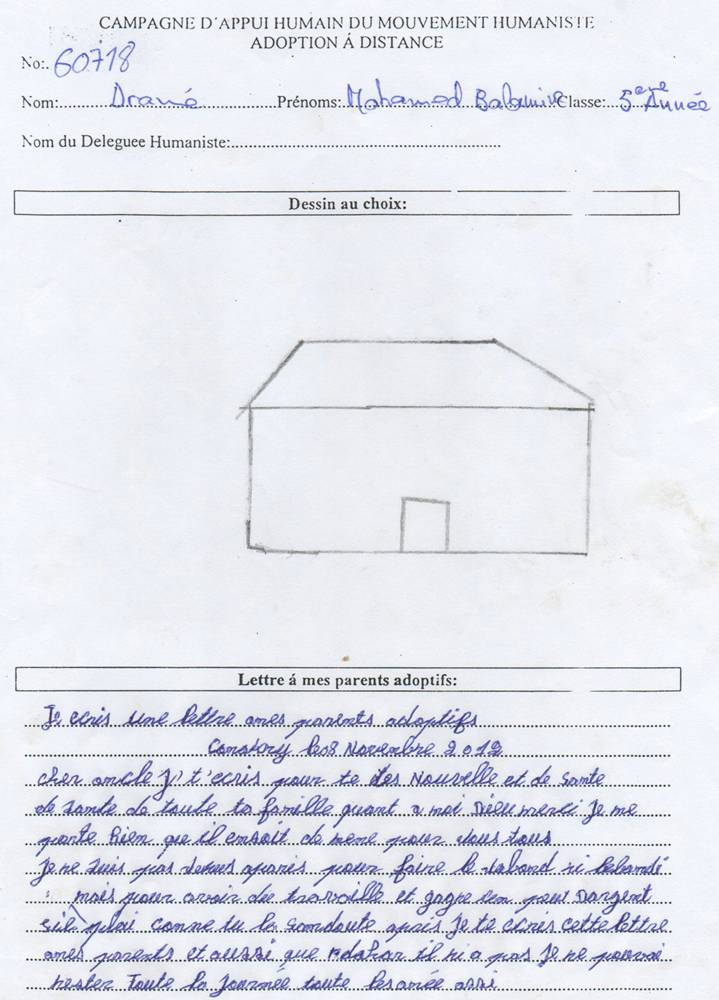 CAMPAGNE D'APPUI HUMAIN DU MOUVEMENT HUMANISTE
ADOPTION Á DISTANCE
No: 60718
Nom: Dramé Prénoms: Mohamed Classe: 5eme Année
Nom du Deleguee Humaniste:
Dessin au choix:
Lettre á mes parents adoptifs:
Je ecris une lettre ames parents adoptifs
Conakry le8 Novembre 2012
cher oncle J't'ecris pour te des Nouvelle et de sante
de sante de toute ta famille quant a moi Dieu merci Je me
porte bien que il ensoit de meme pour vous tous
Je ne suis pas venus aparis pour faire le
mais pour avoir du travaille et gagne un peut Dargent
sil plai comme tu la sandoute apris Je te ecris cette lettre
ames parents et aussi que il ni a pas Je ne
rester Toute la Journée toute